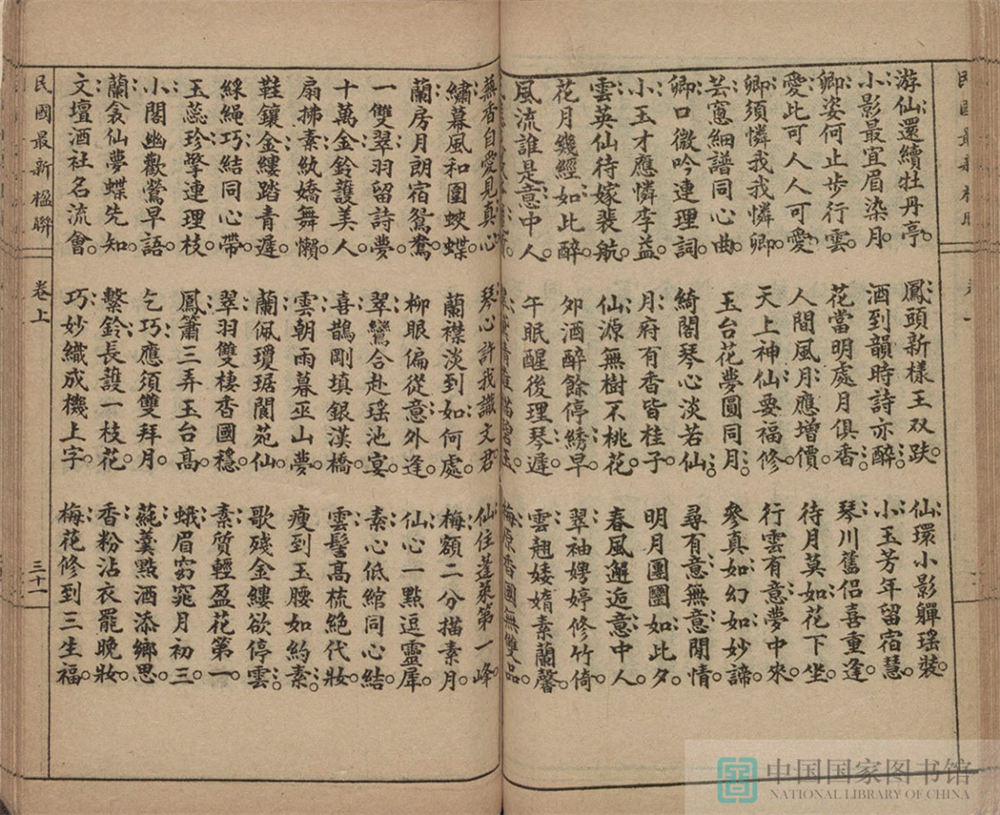 游仙還續牡丹亭
小影最宜眉染月
卿姿何止步行雲
愛此可人人可愛
卿須憐我我憐卿
芸窻細譜同心曲
卿口微吟連理詞
小玉才應憐李益
雲英仙待嫁裴航
花月幾經如此醉
風流誰是意中人
鳳頭新樣玉双趺
酒到韻時詩亦醉
花當明處月俱香
人間風月應增價
天上神仙要福修
玉台花夢圓同月
綺閣琴心淡若仙
月府有香皆桂子
仙源無樹不桃花
夘酒醉餘停綉早
午眠醒後理琴遲
仙環小影軃瑤裝
小玉芳年留宿慧
琴川舊侶喜重逢
待月莫如花下坐
行雲有意夢中來
參真如幻如妙諦
尋有意無意閒情
明月團圞如此夕
春風邂逅意中人
翠袖娉婷修竹倚
雲翹婑媠素蘭馨
梅原香國無雙品
蕪香自愛見真心
繡幕風和圍蛺蝶
蘭房月朗宿鴛鴦
一雙翠羽留詩夢
十萬金鈴護美人
扇拂素紈嬌舞懶
鞋鑲金縷踏青遲
綵繩巧結同心帶
玉蕊珍擎連理枝
小閣幽歡鶯早語
蘭衾仙夢蝶先知
文壇酒社名流會
琴心許我識文君
蘭襟淡到如何處
柳眼偏從意外逢
翠鸞合赴瑤池宴
喜鵲剛填銀漢橋
雲朝雨暮巫山夢
蘭佩瓊琚閬苑仙
翠羽雙棲香國穩
鳳簫三弄玉台高
乞巧應須雙拜月
繫鈴長護一枝花
巧妙織成機上字
仙住蓬萊第一峰
梅額二分描素月
仙心一點逗靈犀
素心低綰同心結
雲髻高梳絶代妝
瘦到玉腰如約素
歌殘金縷欲停雲
素質輕盈花第一
蛾眉窈窕月初三
蒓羹點酒添鄉思
香粉沾衣罷晚妝
梅花修到三生福
民國最新楹聯
卷上
三十一
中国国家图书馆
NATIONAL LIBRARY OF CHINA